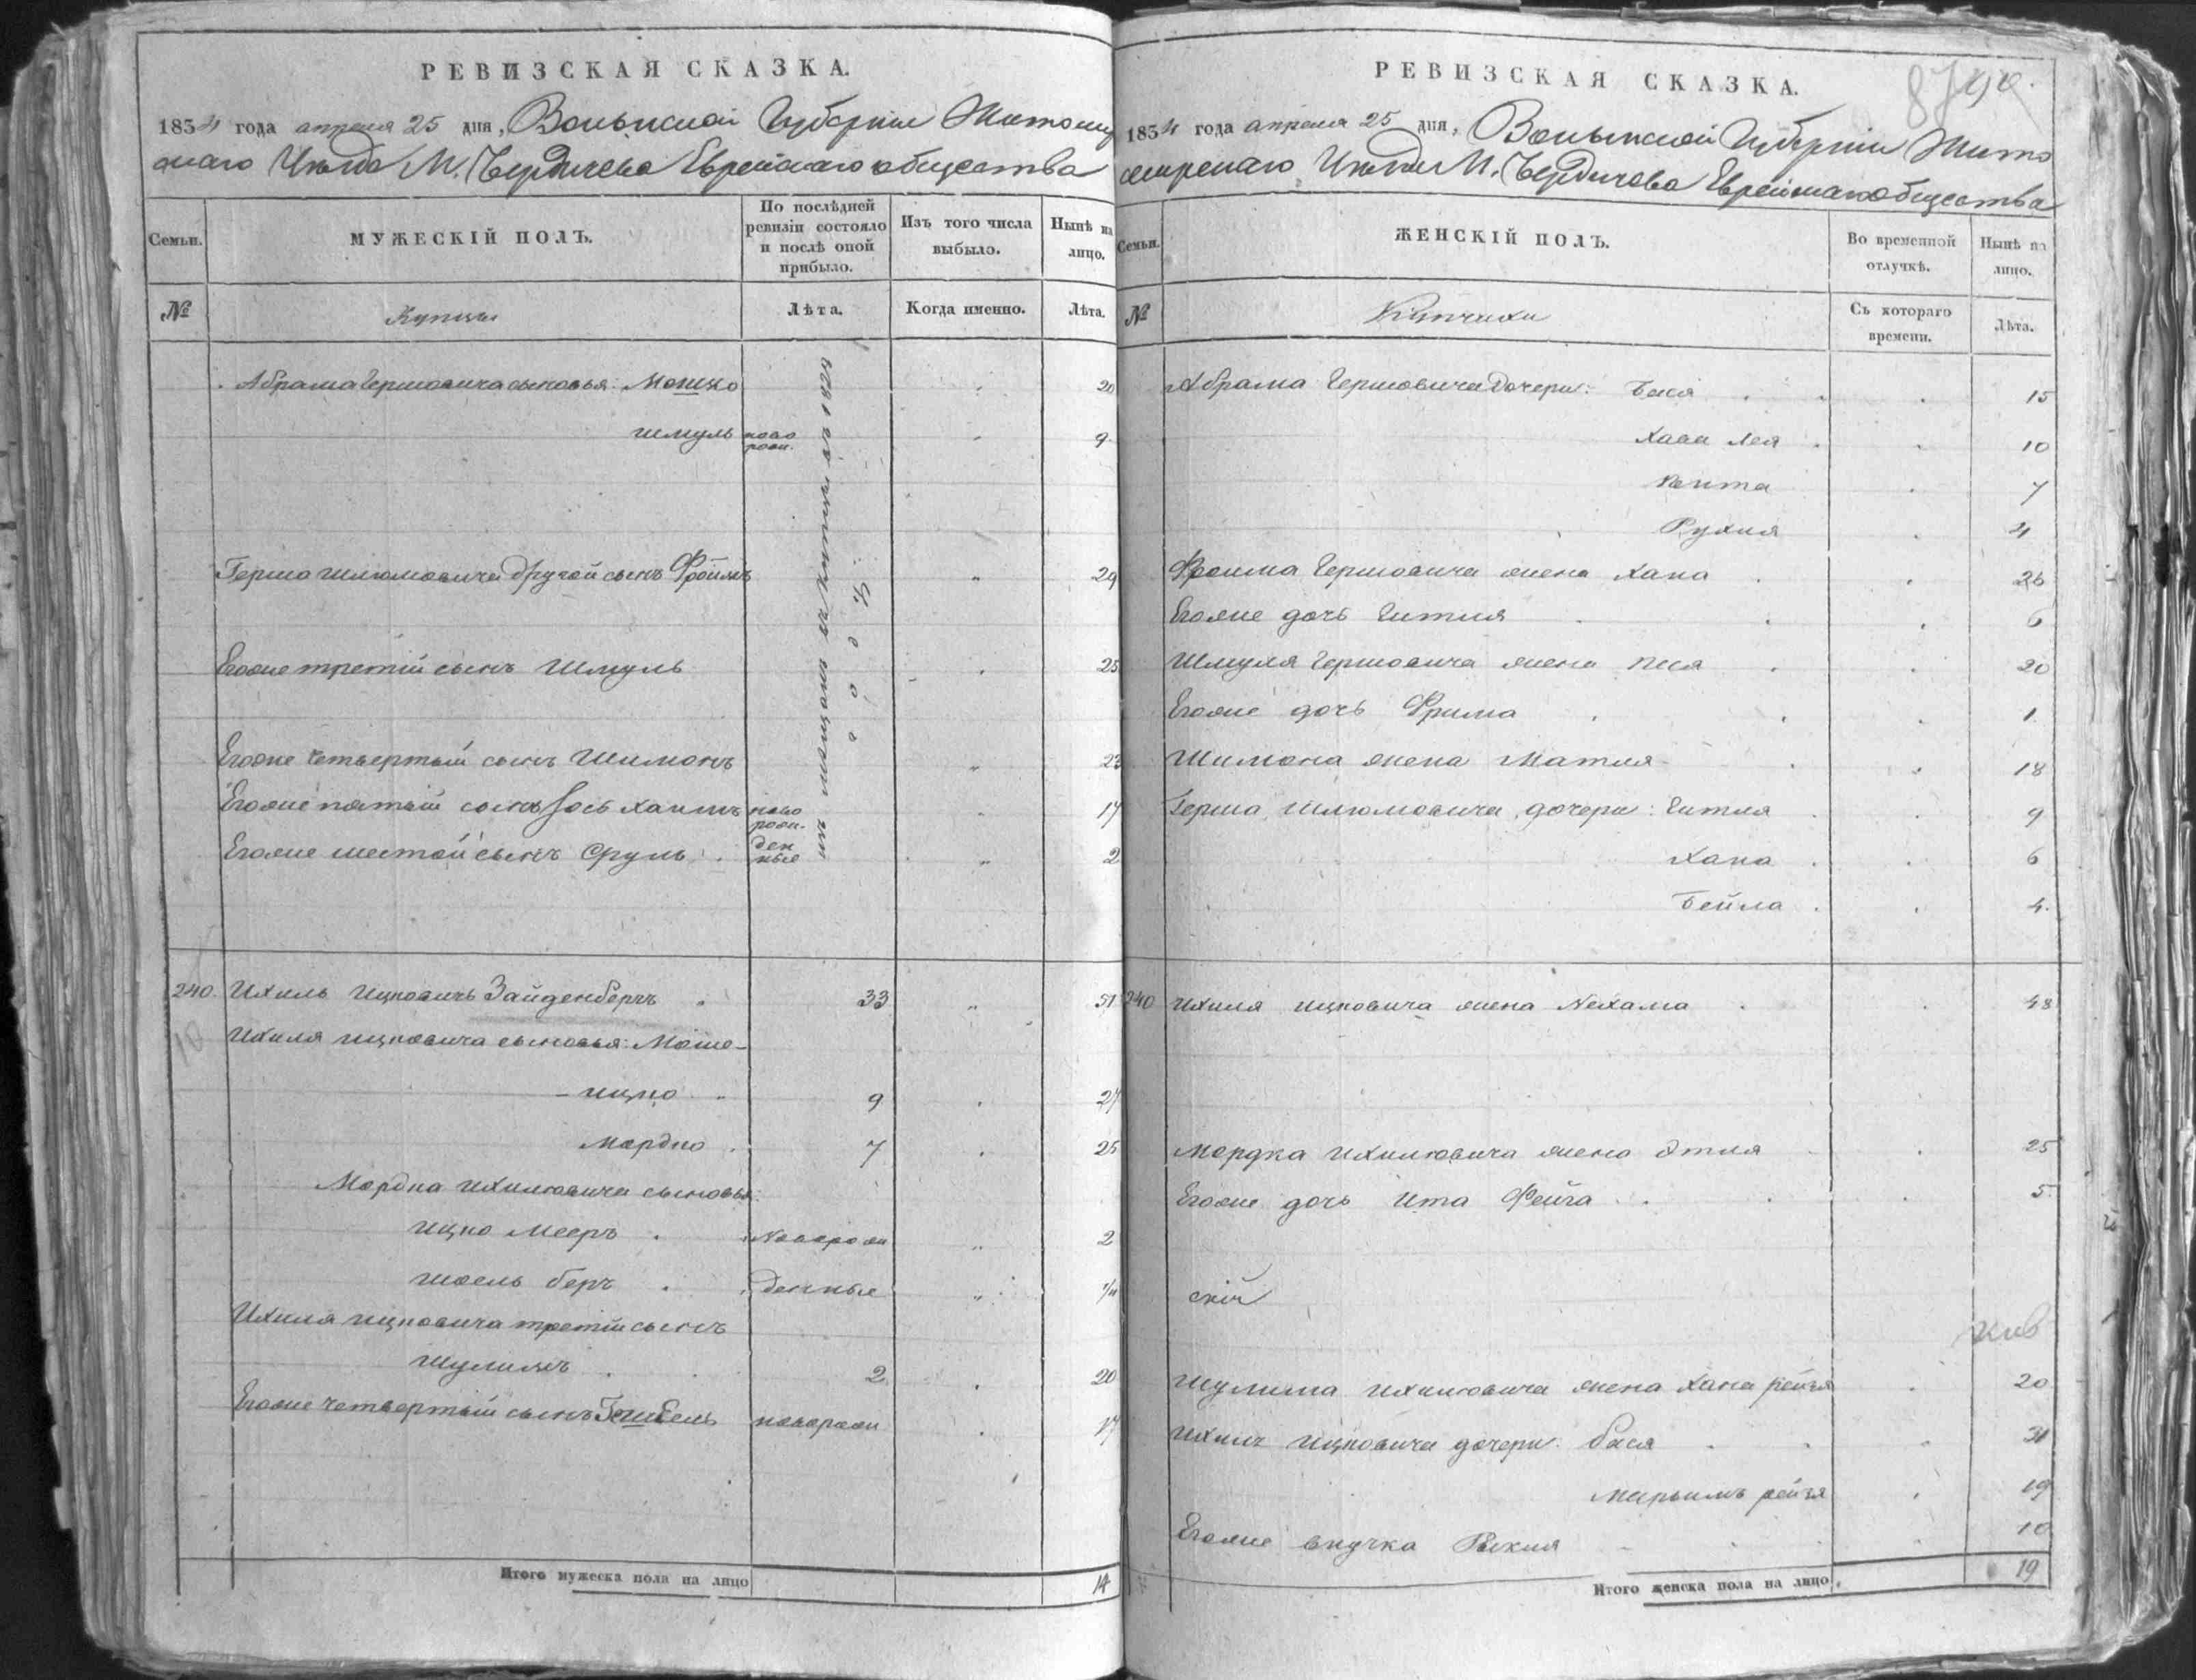 РЕВИЗСКАЯ СКАЗКА.
1854 года апреля 25 дня, Волынской Губернии Житомир
скаго Уѣзда М. Бердичева Еврейскаго общества
Семьи.
МУЖЕСКІЙ ПОЛЪ.
По послѣдней ревизіи состояло и послѣ оной прибыло.
Изъ того числа выбыло.
Нынѣ на лицо.
№
Купцы
Лѣта.
Когда именно.
Лѣта.
Абрама Гершовича сыновья: Мошко 20
Шмуль ново рож. 9
изъ мещанъ въ купцы въ
Герша Шлюмовича другой сынъ Фроимъ 29
Егоже третій сынъ Шмуль 25
Егоже четвертый сынъ Шимонъ 23
Егоже пятый сынъ Іось Хаимъ ново рож- 17
Егоже шестой сынъ Сруль ден ные 2
240. Ихиль Ицковичъ Зайденбергъ 33 51
Ихиля Ицковича сыновья: Моше-
-Ицко 9 27
Мордко 7 25
Мордка Ихилювича сыновья:
Ицко Мееръ Новорож 2
Шоель Беръ денные
Ихиля Ицковича третій сынъ
Шулимъ 2 20
Егоже четвертый сынъ новорож 17
Итого мужеска пола на лицо 14
РЕВИЗСКАЯ СКАЗКА.
1854 года апреля 25 дня, Волынской Губерніи Жито
мирскаго Уѣзда М. Бердичева Еврейскаго общества
Семьи.
ЖЕНСКІЙ ПОЛЪ.
Во временной отлучкѣ.
Нынѣ на лицо.
№
Купчихи
Съ котораго времени.
Лѣта.
Абрама Гершовича дочери: Бася 15
Хава Лея 10
Пента 7
Рухля 4
Фроима Гершовича жена Хана 26
Егоже дочь Гитля 6
Шмуля Гершовича жена Песя 20
Егоже дочь Фрима 1
Шимона жена Матля 18
Герша Шлюмовича дочери: Гитля 9
Хана 6
Бейла 4.
240 Ихиля Ицковича жена Нехама 48
Мордка Ихилювича жена Этля 25
Егоже дочь Ита Фейга 5
скій
Шулима Ихилювича жена Хана рейзя 20
Ихиля Ицковича дочери: Бася 31
Марьимъ рейзя 19
Егоже внучка Рыкля 10
Итого женска пола на лицо, 19